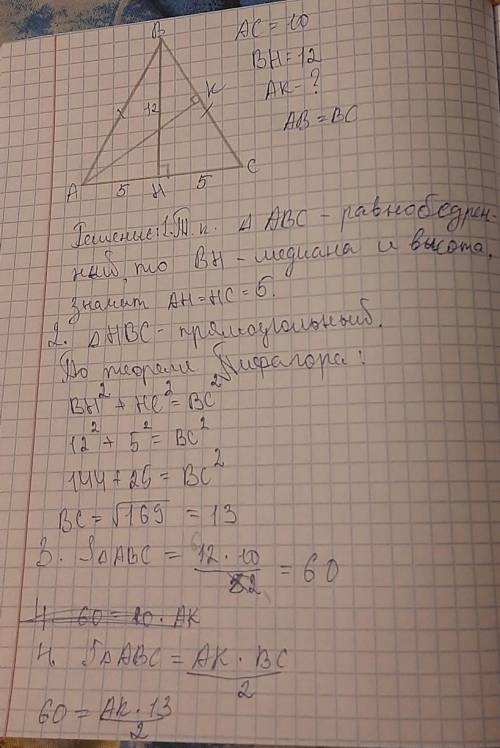 B
AC = 10
BH = 12
AK - ?
AB = BC
K
12
A
5
H
5
C
Решение: 1. Т. к. △ ABC - равнобедрен-
ный, то BH - медиана и высота,
значит AH = HC = 5.
2. △HBC - прямоугольный.
По теореме Пифагора:
BH² + HC² = BC²
12² + 5² = BC²
144 + 25 = BC²
BC = √169 = 13
3. S△ABC = 12 · 10 / 2 = 60
4. 60 = 10 · AK
4. S△ABC = AK · BC / 2
60 = AK · 13 / 2